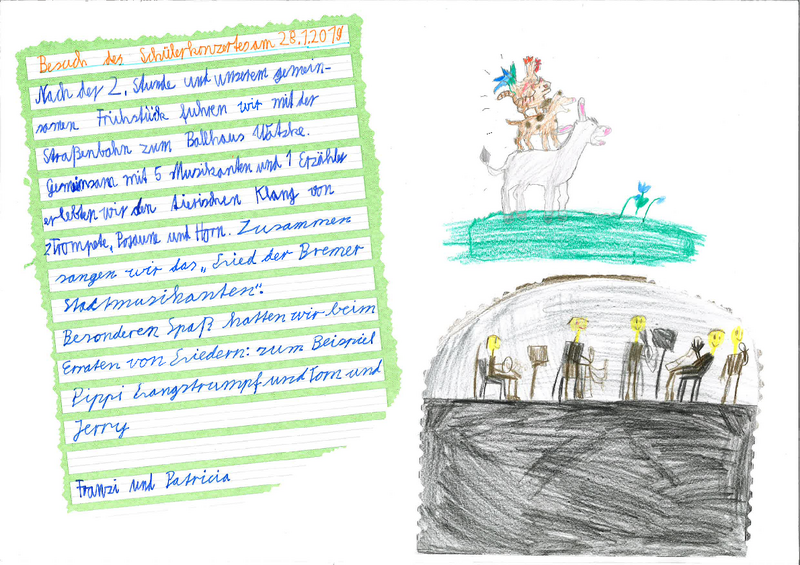 Besuch des Schülerkonzertes am 28.1.2019
Nach der 2. Stunde und unserem gemein-
samen Frühstück fuhren wir mit der
Straßenbahn zum Ballhaus Watzke.
Gemeinsam mit 5 Musikanten und 1 Erzähler
erlebten wir den tierischen Klang von
2 Trompete, Posaune und Horn. Zusammen
sangen wir das „Lied der Bremer
Stadtmusikanten“.
Besonderen Spaß hatten wir beim
Erraten von Liedern: zum Beispiel
Pippi Langstrumpf und Tom und
Jerry
Franzi und Patricia